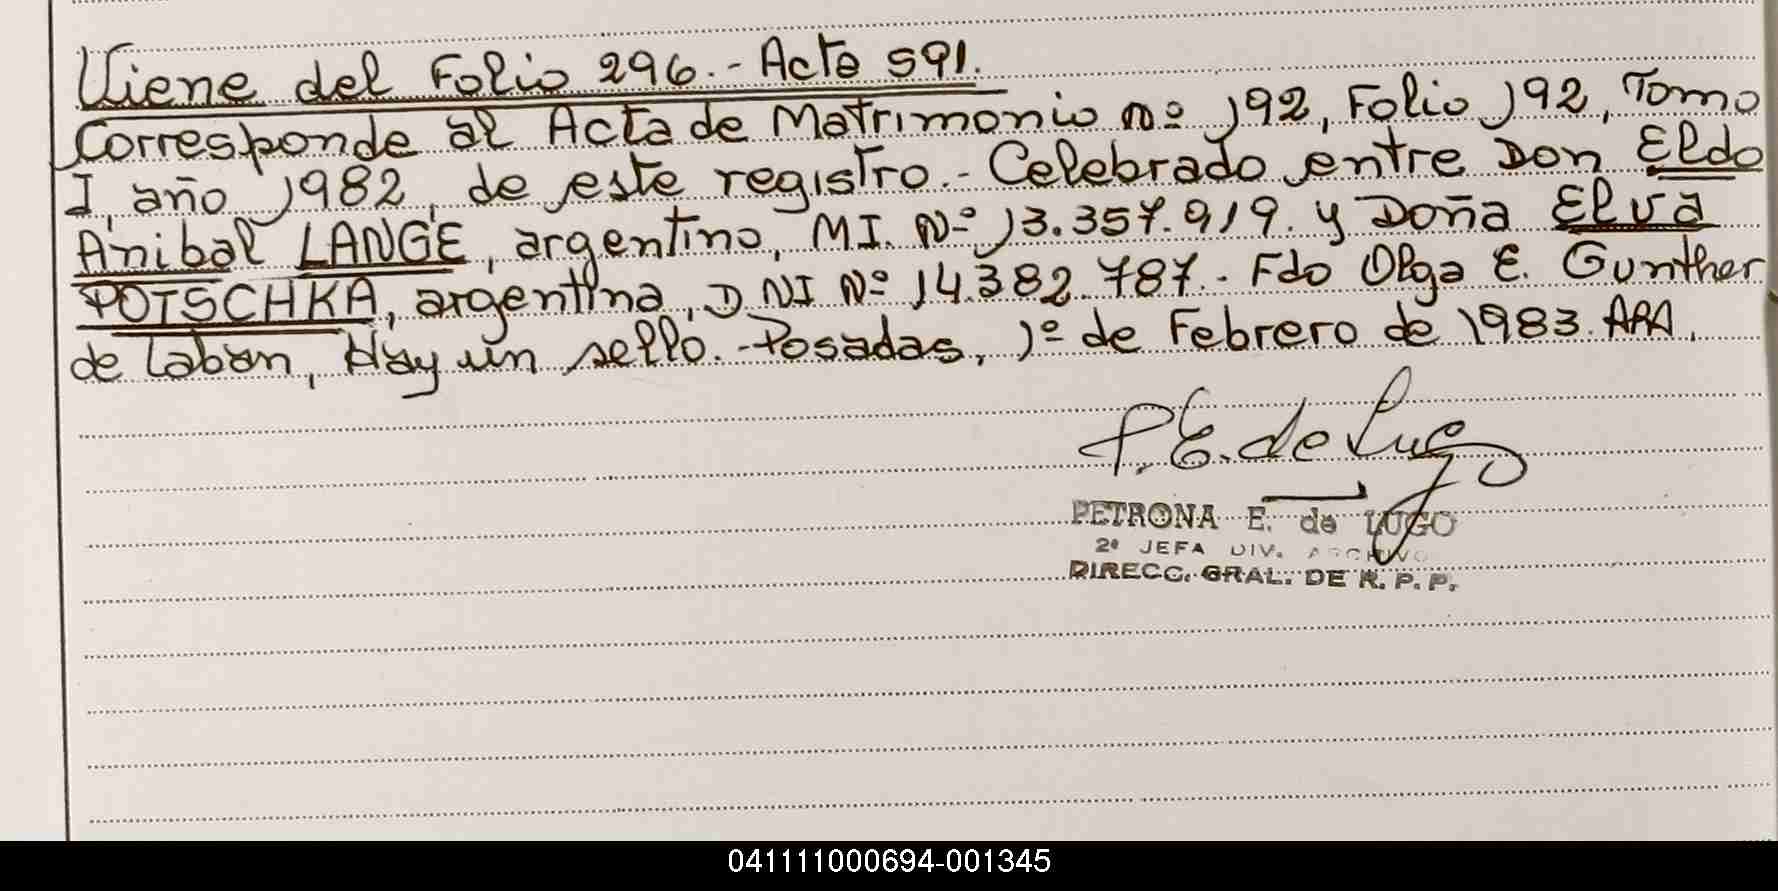 Viene del Folio 296.- Acta 591.
Corresponde al Acta de Matrimonio nº 192, Folio 192, Tomo
I, año 1982, de este registro.- Celebrado entre Don Eldo
Anibal LANGE, argentino, MI. Nº 13.357.919. y Doña Elva
POTSCHKA, argentina, DNI Nº 14.382.787.- Fdo Olga E. Gunther
de Laban, Hay un sello.- Posadas, 1º de Febrero de 1983. ARA.
P.E. de Lugo
PETRONA E. de LUGO
2ª JEFA DIV. ARCHIVO
DIRECC. GRAL. DE R. P. P.
041111000694-001345